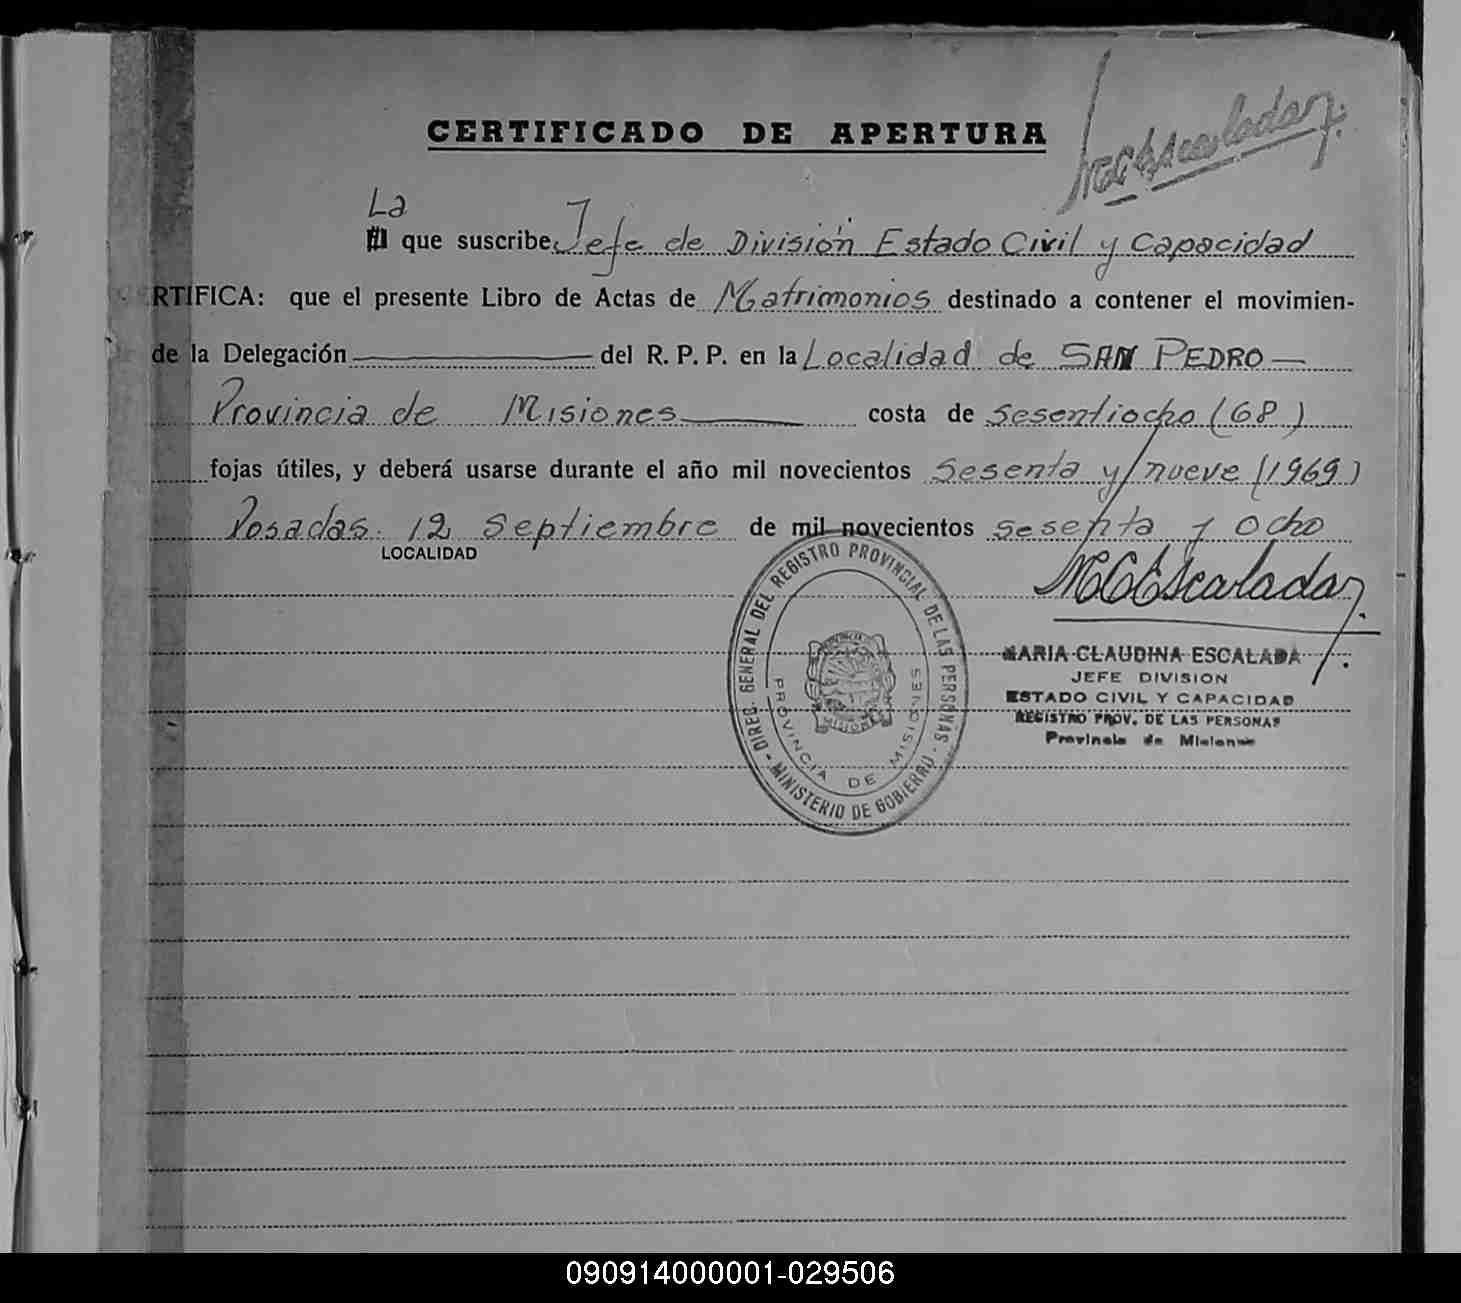 CERTIFICADO DE APERTURA
MCEscalada
La
El que suscribe Jefe de División Estado Civil y Capacidad
RTIFICA: que el presente Libro de Actas de Matrimonios destinado a contener el movimien-
de la Delegación del R. P. P. en la Localidad de SAN PEDRO
Provincia de Misiones costa de Sesentiocho (68)
fojas útiles, y deberá usarse durante el año mil novecientos Sesenta y nueve (1969)
Posadas. 12 Septiembre de mil novecientos sesenta y ocho
LOCALIDAD
MCEscalada
DIREC. GENERAL DEL REGISTRO PROVINCIAL DE LAS PERSONAS - MINISTERIO DE GOBIERNO -
PROVINCIA DE MISIONES
MARIA CLAUDINA ESCALADA
JEFE DIVISION
ESTADO CIVIL Y CAPACIDAD
REGISTRO PROV. DE LAS PERSONAS
Provincia de Misiones
090914000001-029506